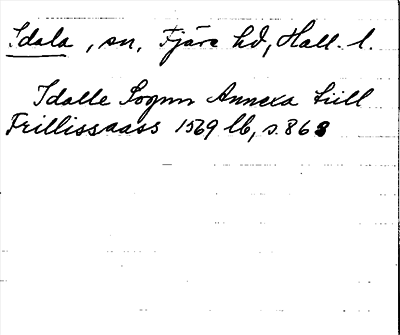 Idala, sn, Fjäre hd, Hall. l.
Idalle Sognn Annexa till
Frillissaass 1569 lb, s. 868